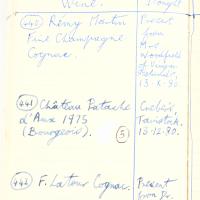 Wine. Bought
(440) Rémy Martin Present
Fine Champagne from
Cognac. Mrs
Woodfield
of
13.X.90.
(441) Château Patache
d'Aux 1975 Tavistock.
(Bourgeois). (5) 13.12.90.
(442) F. Latour Cognac. Present
from Dr.